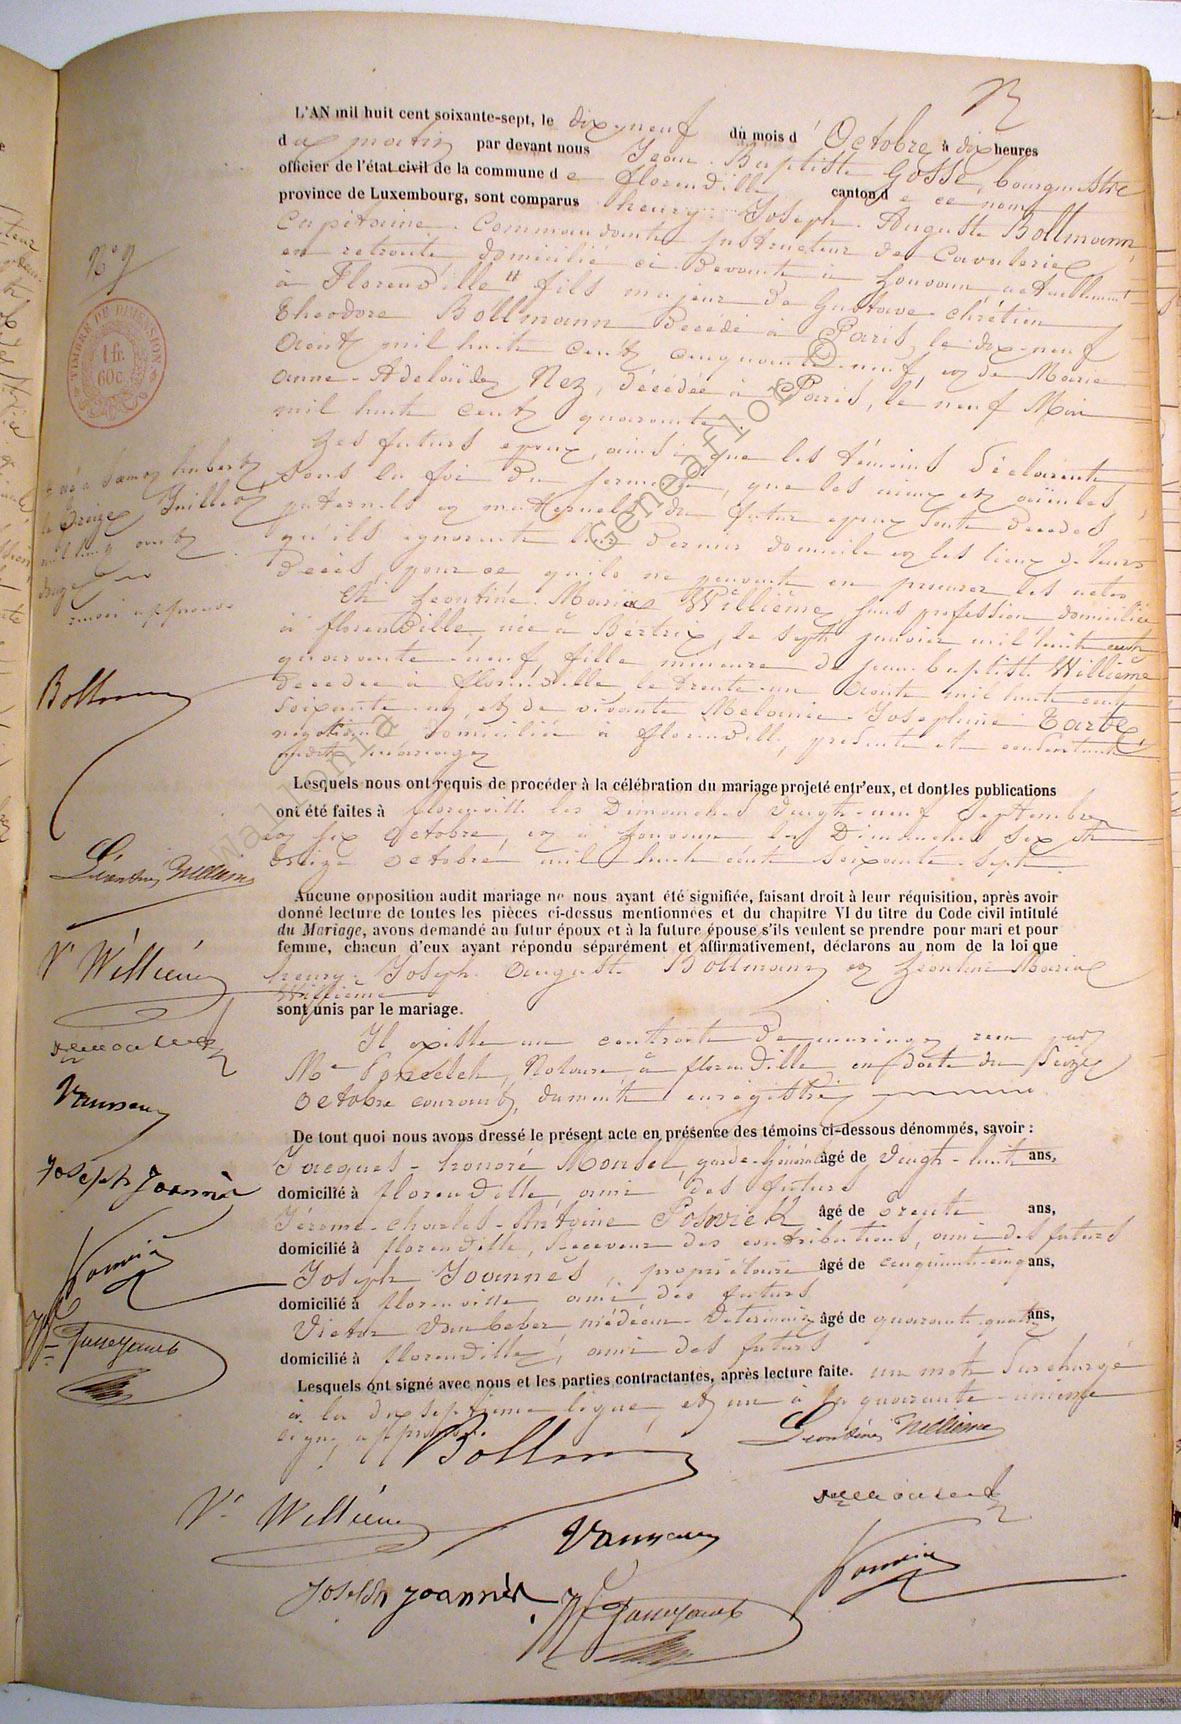 L'AN mil huit cent soixante-sept, le dix-neuf du mois d'Octobre à dix heures
du matin par devant nous Jean-Baptiste Gosse, bourgmestre
officier de l'état civil de la commune de florenville canton de ce nom
province de Luxembourg, sont comparus henry-Joseph-Auguste Bollmann,
Capitaine-Commandant Instructeur de Cavalerie
en retraite, domicilié ci devant à Louvain actuellement
à Florenville # fils majeur de Gustave-chrétien
théodore Bollmann décédé à Paris, le dix-neuf
Août mil huit cent cinquante-neuf, et de Marie
anne-Adelaïde Nez, décédée à Paris, le neuf Mai
mil huit cent quarante
Les futurs epoux, ainsi que les témoins déclarent
sous la foi du serment, que les aieux et aieules
paternels et maternels du futur epoux sont décédés
qu'ils ignorent leur dernier domicile et les lieux de leurs
décès, pour ce qu'ils ne peuvent en procurer les actes
Et Léontine-Maria Willième, sans profession domiciliée
à florenville, née à Bertrix, le sept janvier mil huit cent
quarante-neuf, fille mineure de jean-baptiste Willième
décédé à florenville, le trente-un Août mil huit cent
soixante et de vivante Mélanie-Joséphine Barbe
négociante domiciliée à florenville, présente et consentante
mariage
Lesquels nous ont requis de procéder à la célébration du mariage projeté entr'eux, et dont les publications
ont été faites à florenville les Dimanches Vingt-neuf Septembre
et six Octobre, et à Louvain les Dimanches six et
treize octobre mil huit cent soixante-sept
Aucune opposition audit mariage ne nous ayant été signifiée, faisant droit à leur réquisition, après avoir
donné lecture de toutes les pièces ci-dessus mentionnées et du chapitre VI du titre du Code civil intitulé
du Mariage, avons demandé au futur époux et à la future épouse s'ils veulent se prendre pour mari et pour
femme, chacun d'eux ayant répondu séparément et affirmativement, déclarons au nom de la loi que
henry-Joseph-Auguste Bollmann et Léontine-Maria
Willième
sont unis par le mariage.
Il existe un contrat de mariage reçu par
Me Notaire à florenville en date du Seize
octobre courant, dument enregistré
De tout quoi nous avons dressé le présent acte en présence des témoins ci-dessous dénommés, savoir :
Jacques-honoré garde-Général âgé de Vingt-huit ans,
domicilié à florenville, ami des futurs
Jérome-charles-Antoine Posvick âgé de trente ans,
domicilié à florenville, Receveur des contributions, ami des futurs
Joseph Joannès, propriétaire âgé de cinquante-cinq ans,
domicilié à florenville ami des futurs
Victor médecin-Vétérinaire âgé de quarante-quatre ans,
domicilié à florenville, ami des futurs
Lesquels ont signé avec nous et les parties contractantes, après lecture faite. un mot surchargé
à la dix septième ligne, et un à la quarante-unième
ligne, approuvés.
Bollmann
Léontine Willième
Ve Willième
Joseph Joannès
No 9
TIMBRE DE DIMENSION
1 fr.
60 c.
# né à Hubert
le treize Juillet
mil huit cent
renvoi approuvé
Bollmann
Léontine Willième
Ve Willième
Joseph Joannès
wallonia © Geneaflor